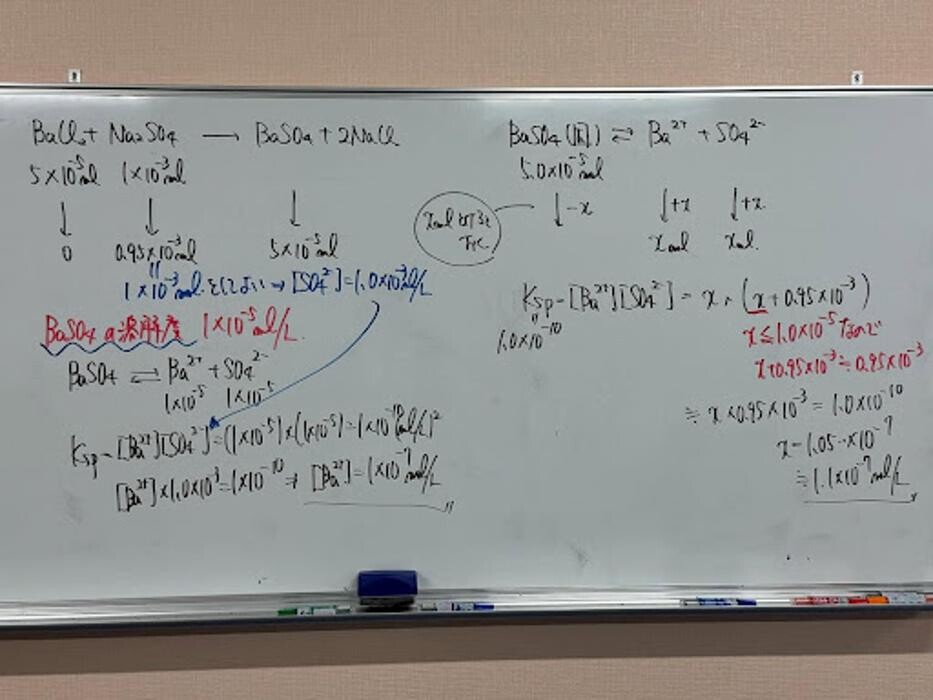 BaCl₂ + Na₂SO₄ → BaSO₄ + 2NaCl
5×10⁻⁵mol 1×10⁻³mol
↓ ↓ ↓
0 0.95×10⁻³mol 5×10⁻⁵mol
1×10⁻³mol としてよい → [SO₄²⁻]=1.0×10⁻³mol/L
BaSO₄の溶解度 1×10⁻⁵mol/L.
BaSO₄ ⇄ Ba²⁺ + SO₄²⁻
1×10⁻⁵ 1×10⁻⁵
Ksp=[Ba²⁺][SO₄²⁻]=(1×10⁻⁵)×(1×10⁻⁵)=1×10⁻¹⁰(mol/L)²
[Ba²⁺]×1.0×10⁻³=1×10⁻¹⁰ → [Ba²⁺]=1×10⁻⁷mol/L
BaSO₄(固) ⇄ Ba²⁺ + SO₄²⁻
5.0×10⁻⁵mol
↓-x ↓+x ↓+x
x mol
x mol x mol.
Ksp=[Ba²⁺][SO₄²⁻] = x × (x+0.95×10⁻³)
1.0×10⁻¹⁰
x≦1.0×10⁻⁵ なので
x+0.95×10⁻³≒0.95×10⁻³
≒ x×0.95×10⁻³=1.0×10⁻¹⁰
x=1.05…×10⁻⁷
≒1.1×10⁻⁷mol/L